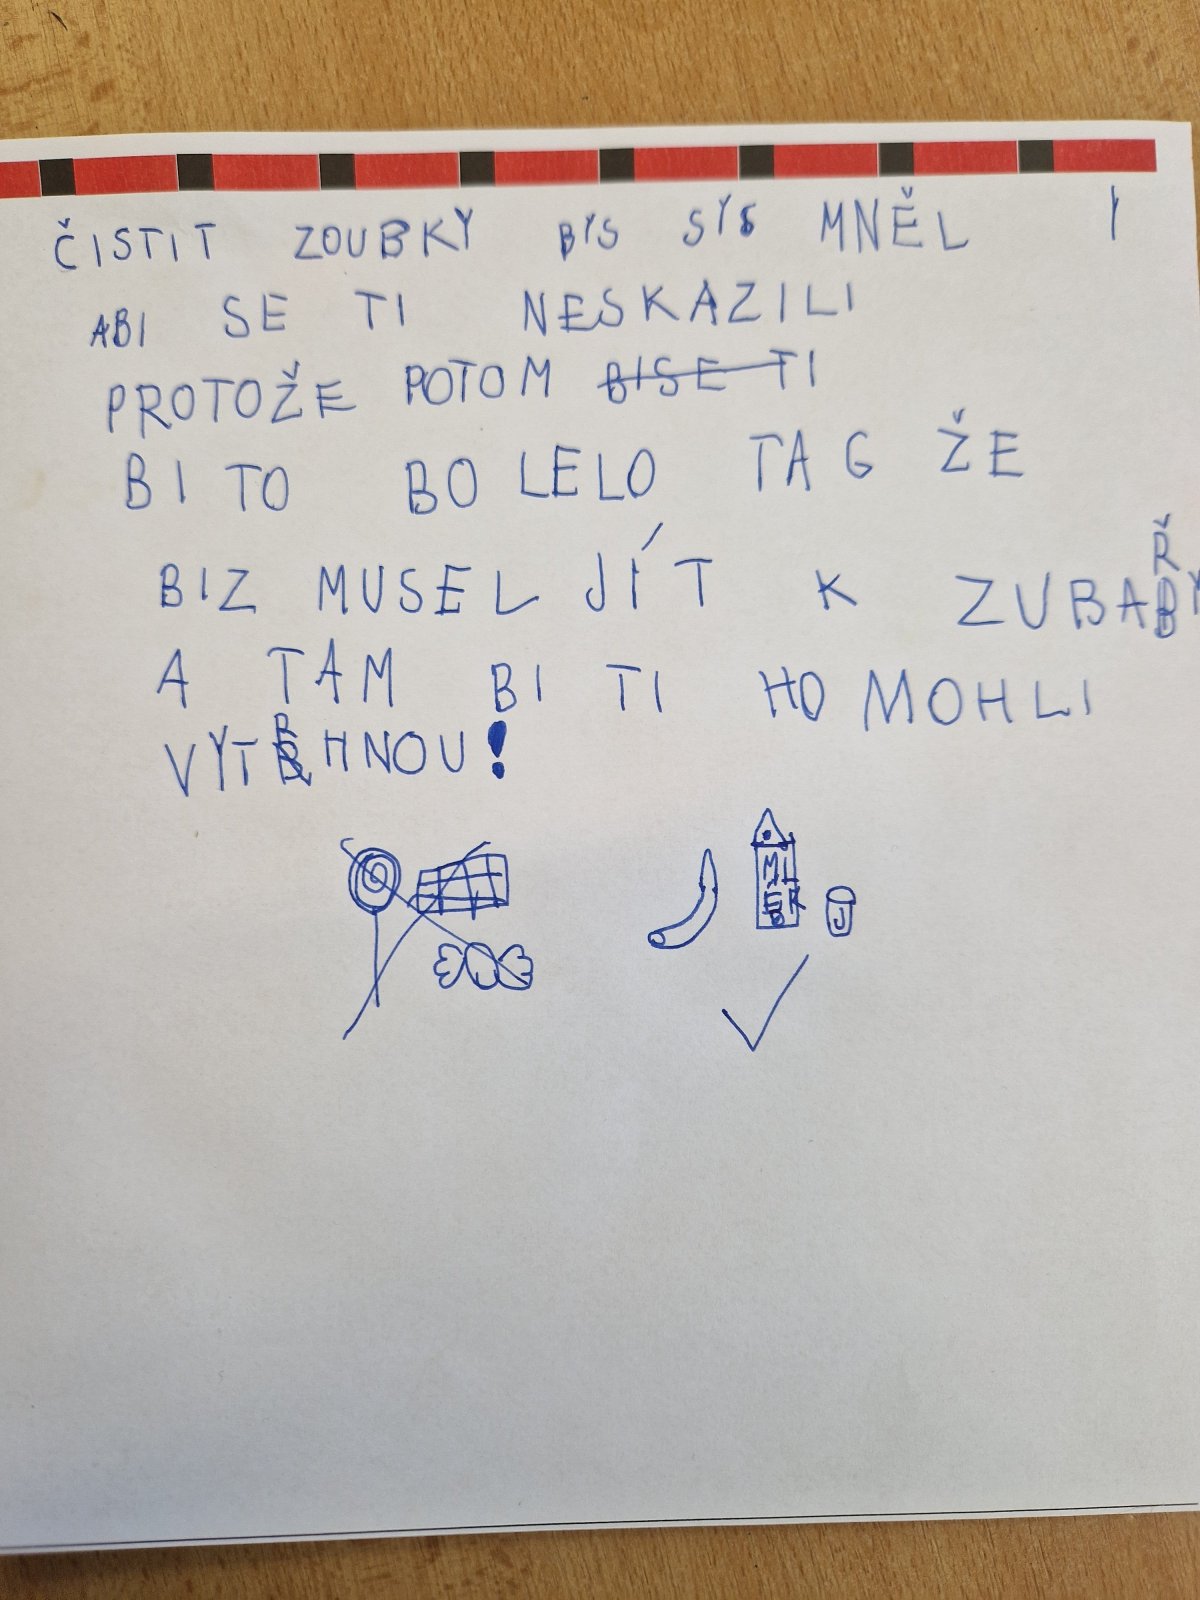 ČISTIT ZOUBKY BYS SYS MNĚL
ABI SE TI NESKAZILI
PROTOŽE POTOM BISE TI
BI TO BOLELO TAG ŽE
BIZ MUSEL JÍT K ZUBAŘY
A TAM BI TI HO MOHLI
VYTRHNOU!
J